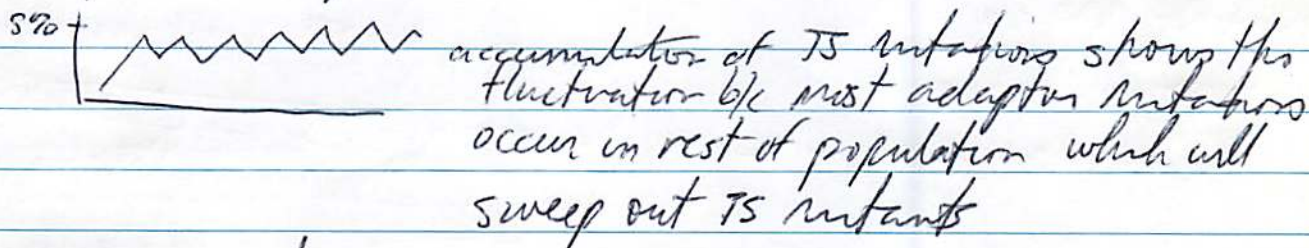 5%
accumulation of TS mutations shows this
fluctuation b/c most adaptive mutations
occur in rest of population which will
sweep out TS mutants